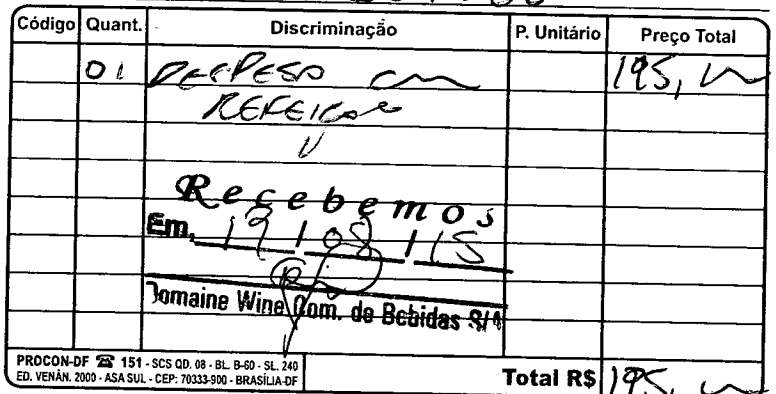 Código Quant. Discriminação P. Unitário Preço Total
01 DESPESA com 195,
REFEIÇÃO
Recebemos
Em, 19 / 08 / 15
Domaine Wine Com. de Bebidas S/A
PROCON-DF ☎ 151 - SCS QD. 08 - BL. B-60 - SL. 240
ED. VENÂN. 2000 - ASA SUL - CEP: 70333-900 - BRASÍLIA-DF
Total R$ 195,